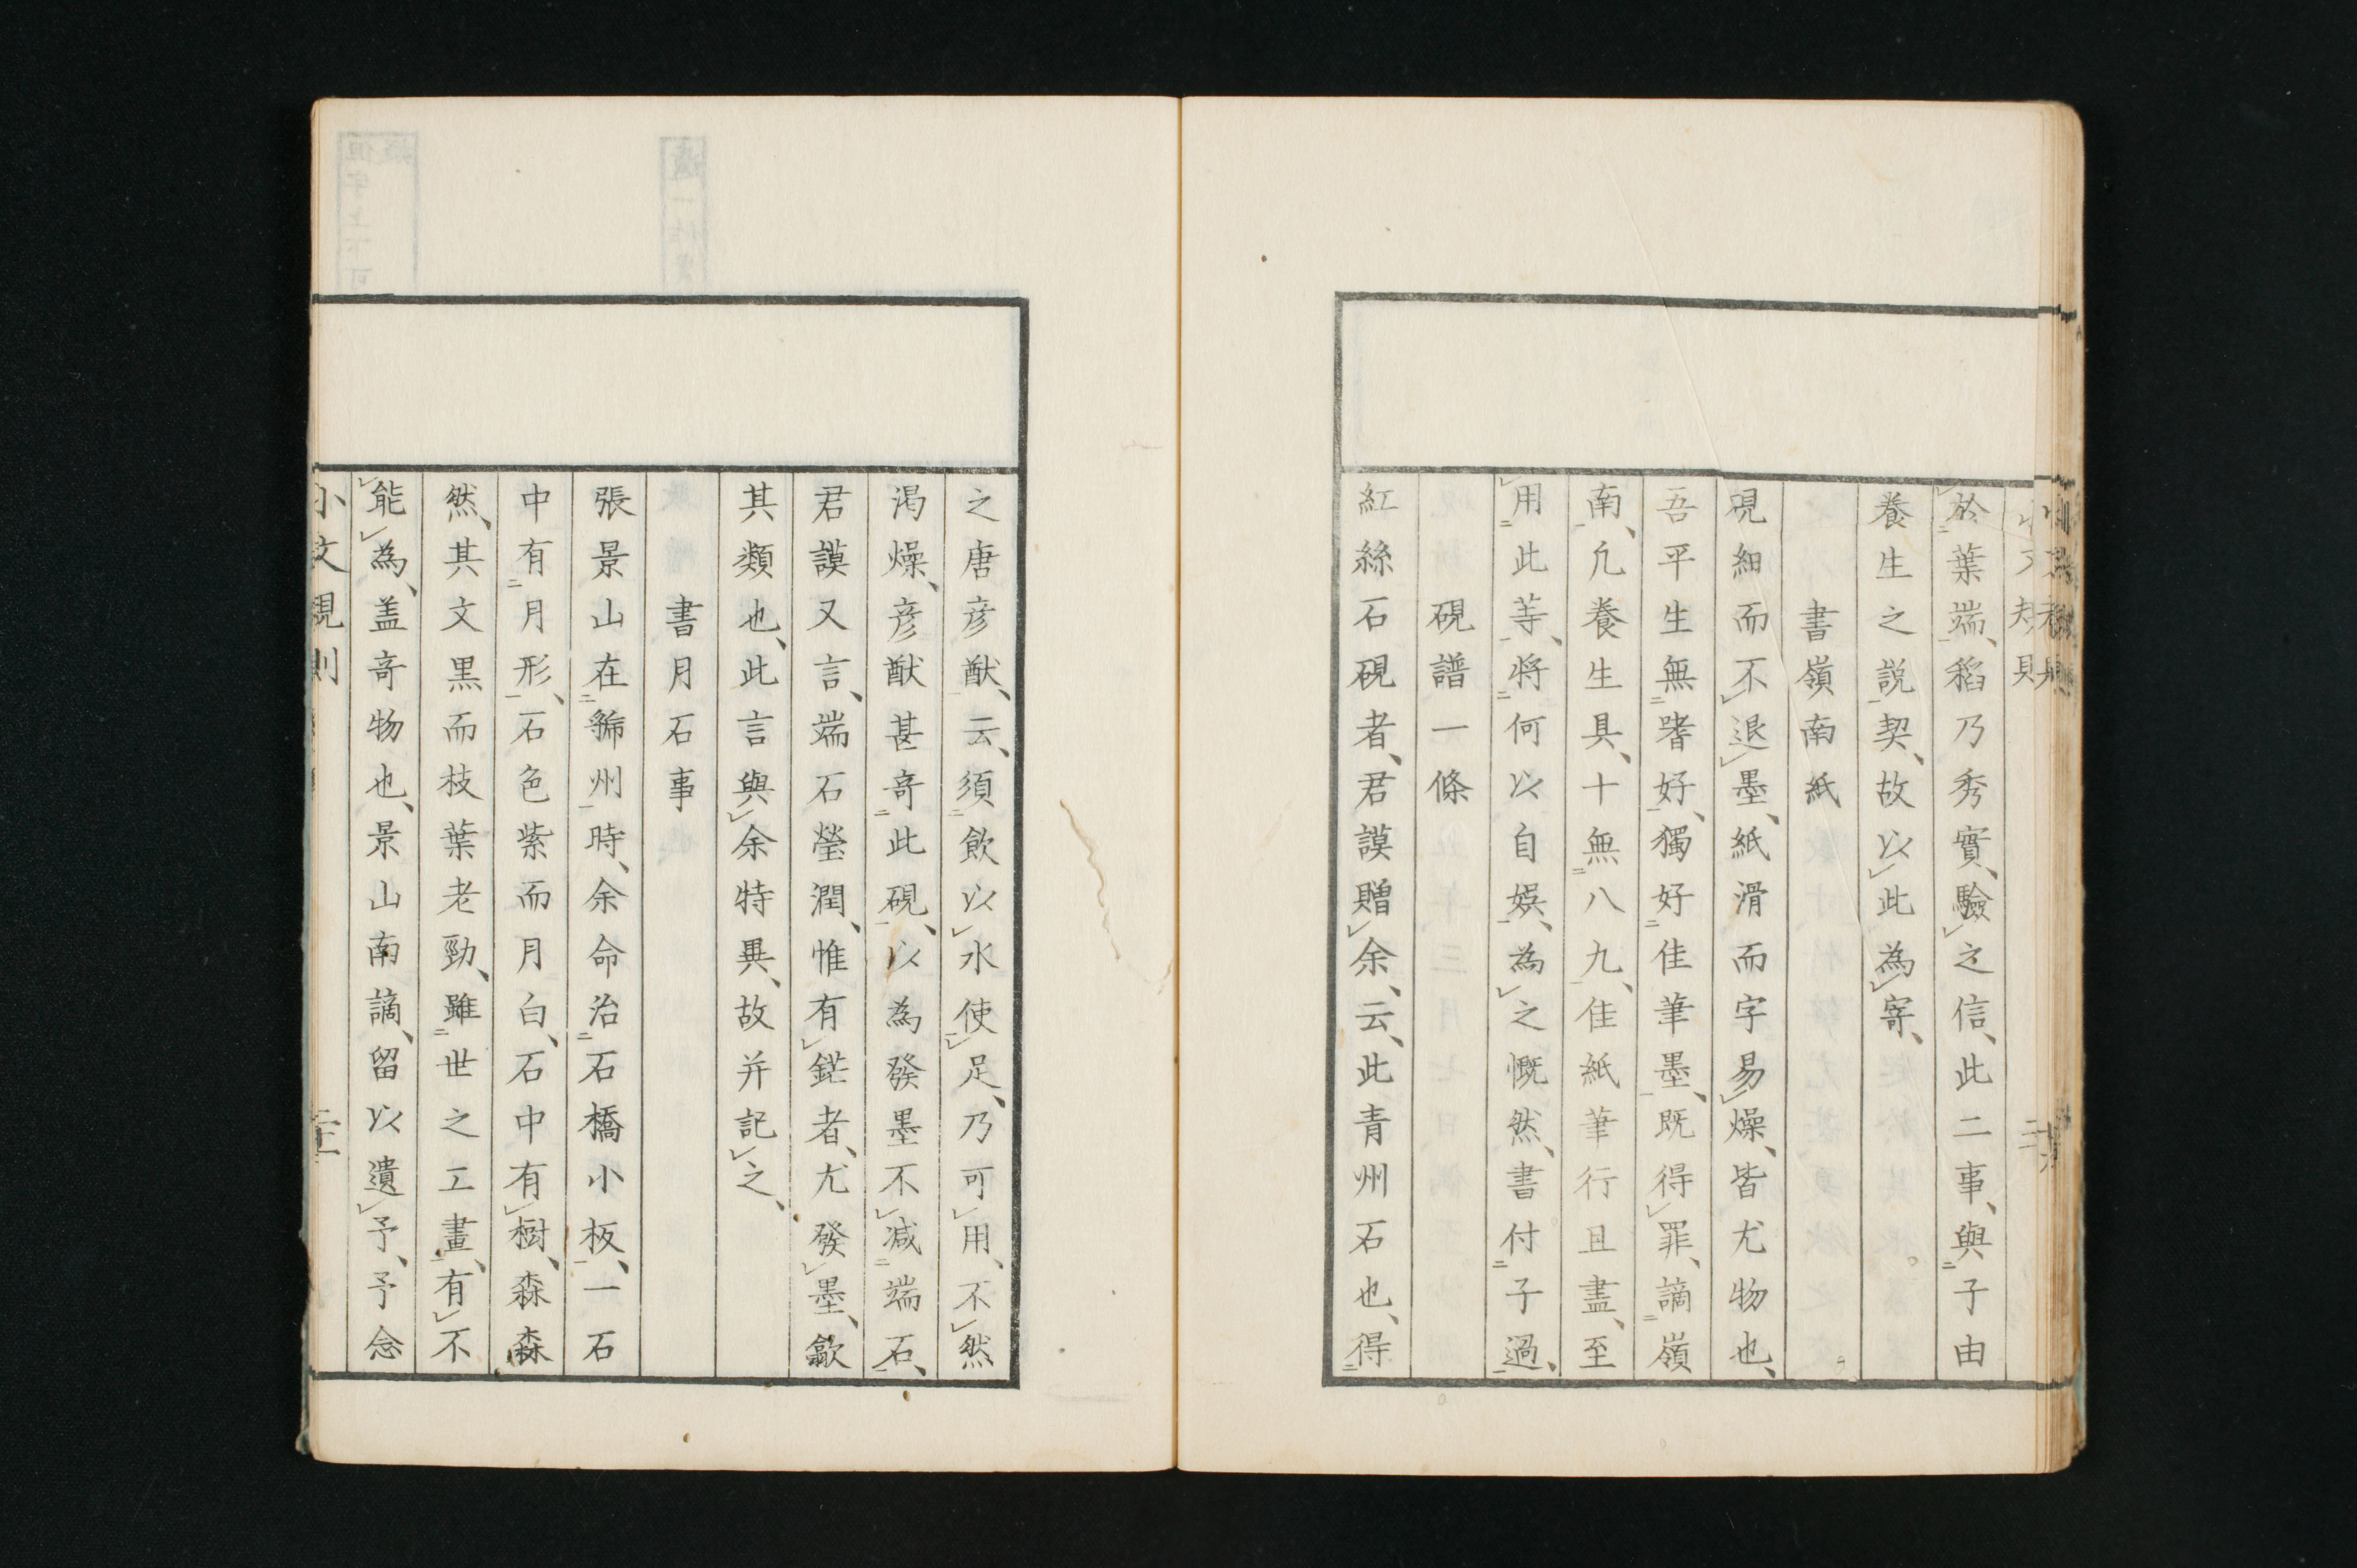 於葉端、稻乃秀實、驗之信、此二事、與子由
養生之説契、故以此為寄、
書嶺南紙
硯細而不退墨、紙滑而字易燥、皆尤物也、
吾平生無嗜好、獨好佳筆墨、既得罪、謫嶺
南、凡養生具、十無八九、佳紙筆行且盡、至
用此等、將何以自娯、為之慨然、書付子過、
硯譜一條
紅絲石硯者、君謨贈余、云、此青州石也、得
之唐彦猷、云、須飲以水使足、乃可用、不然
渇燥、彦猷甚奇此硯、以為發墨不減端石、
君謨又言、端石瑩潤、惟有鋩者、尤發墨、歙
其類也、此言與余特異、故并記之、
書月石事
張景山在虢州時、余命治石橋小板、一石
中有月形、石色紫而月白、石中有樹、森森
然、其文黒而枝葉老勁、雖世之工畫、有不
能為、盖奇物也、景山南謫、留以遺予、予念
小文規則